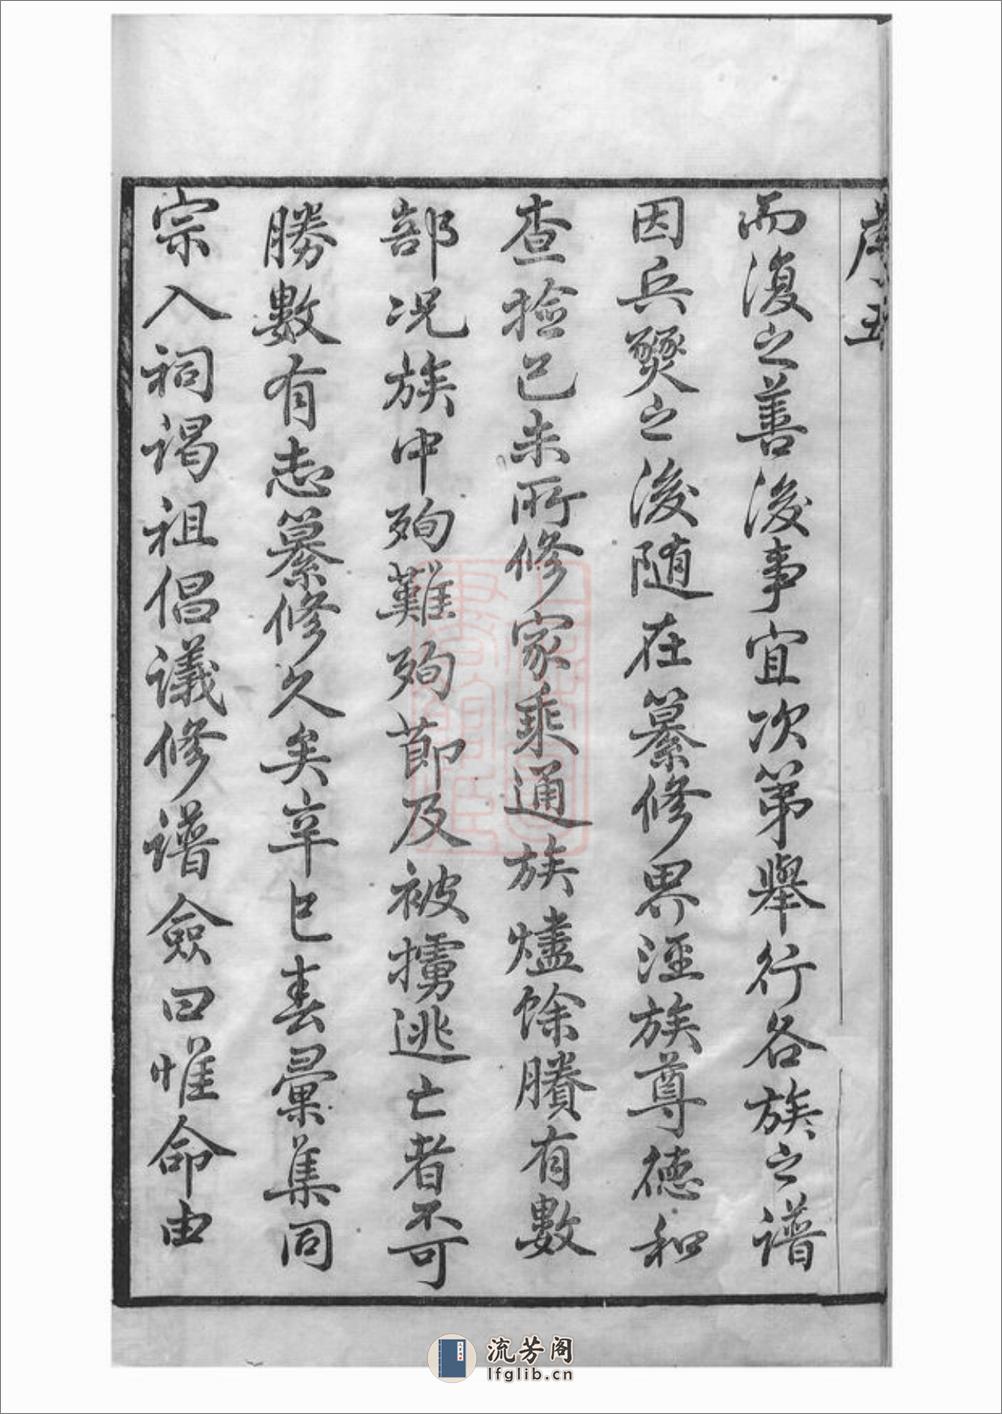 而復之善後事宜次第舉行各族之譜
因兵燹之後隨在纂修界涇族尊德和
查撿己未所修家乘通族燼馀賸有數
部况族中殉難殉節及被擄逃亡者不可
勝數有志纂修久矣辛巳春彙集同
宗入祠謁祖倡議修譜僉曰惟命由
流芳阁
lfglib.cn